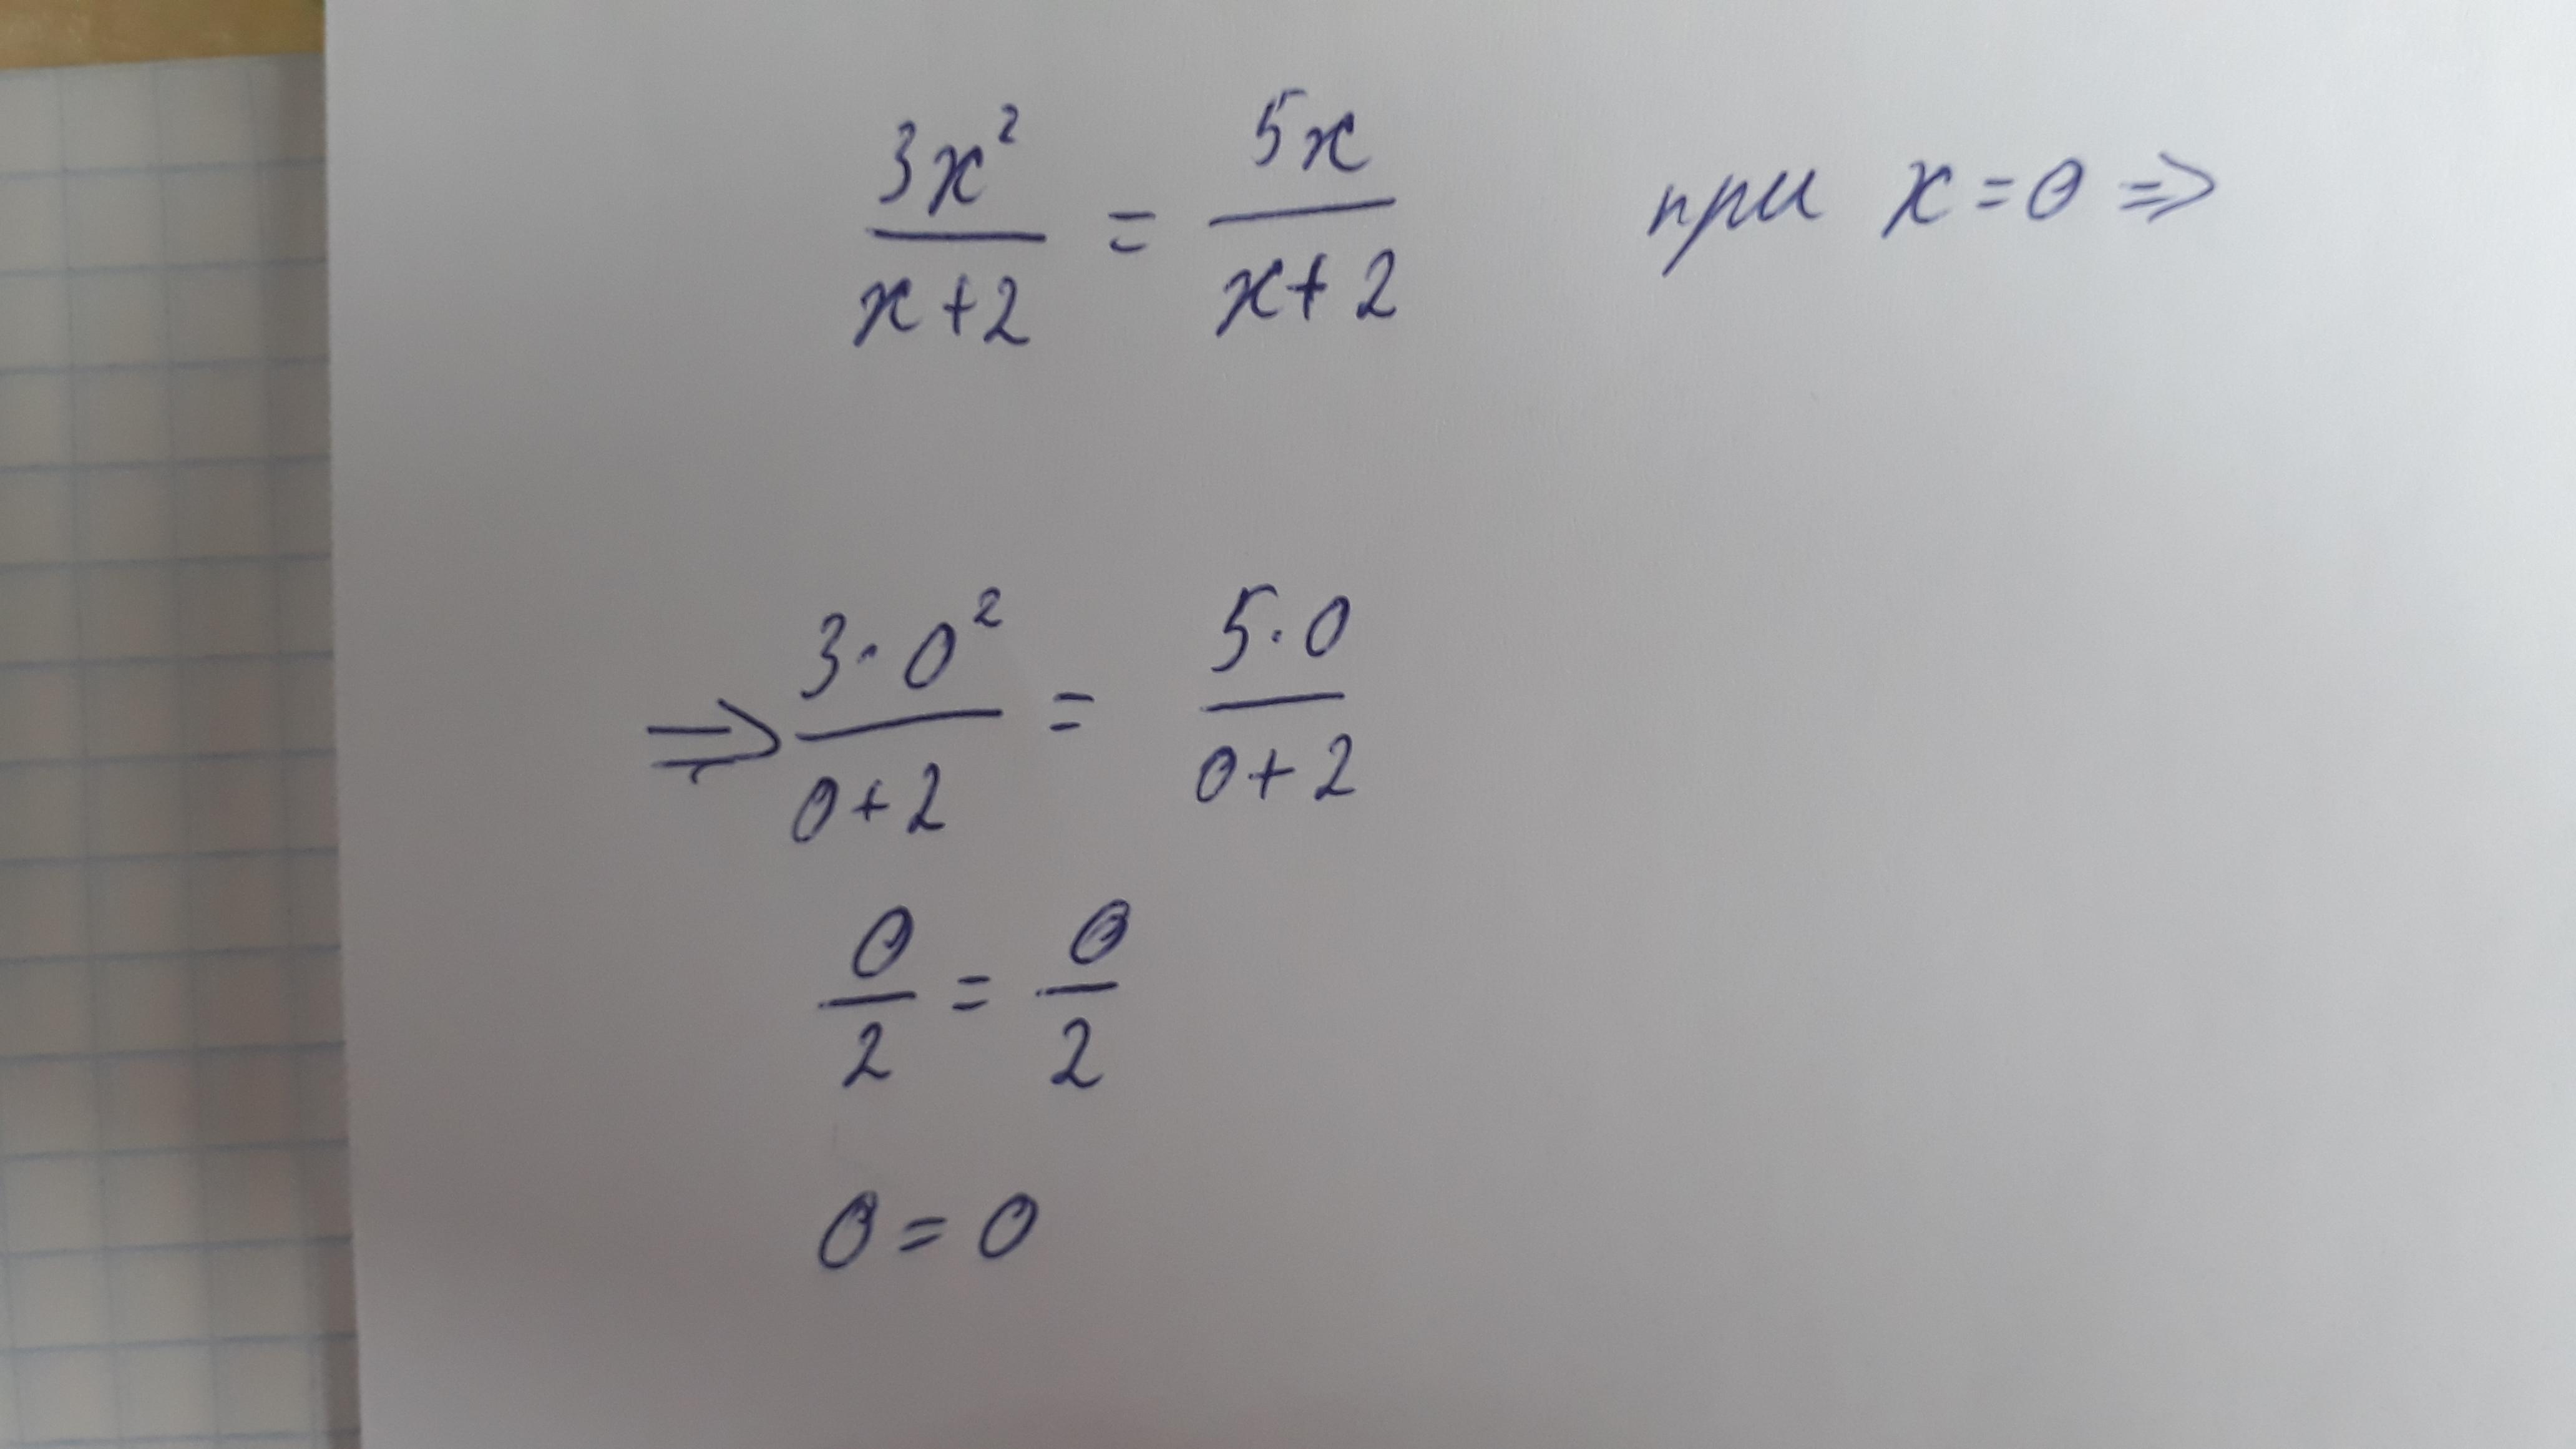 3x²/(x+2) = 5x/(x+2) при x=0 ⇒
⇒ 3·0²/(0+2) = 5·0/(0+2)
0/2 = 0/2
0 = 0